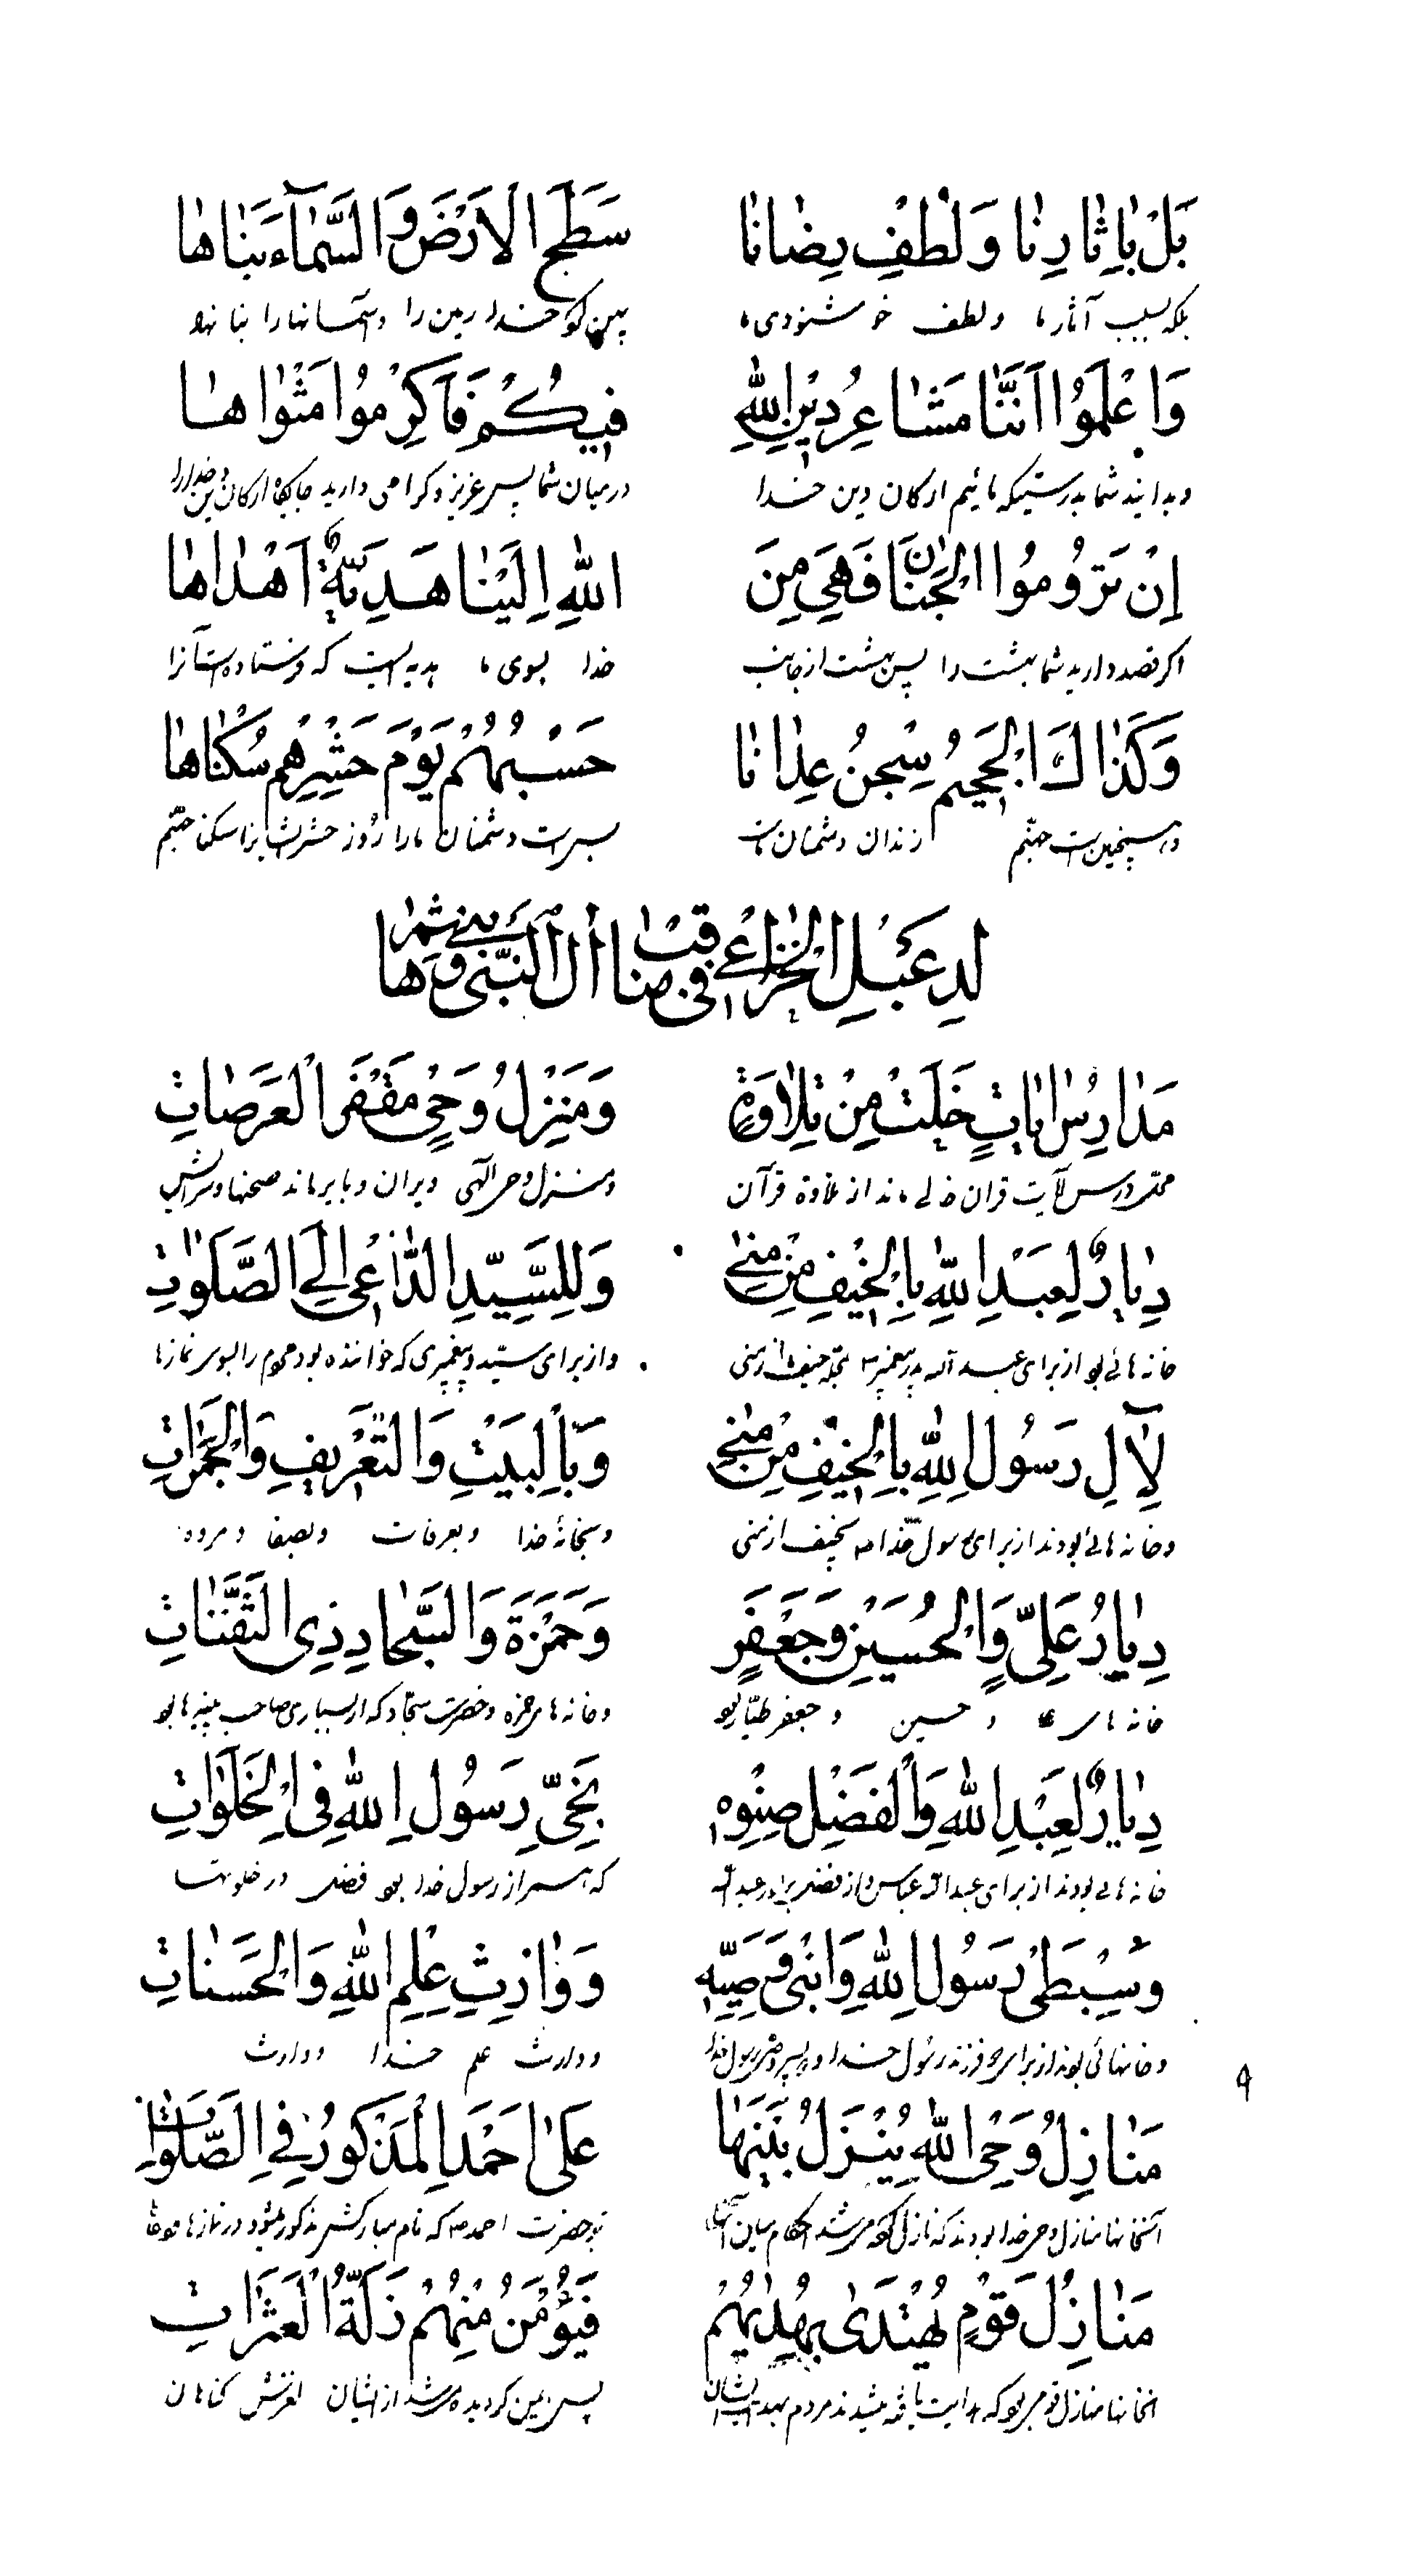 بَلْ بِاٰثٰارِنٰا وَلُطْفِ رِضٰانٰا سَطَحَ الْاَرْضَ وَالسَّمٰآءَ بَنٰاهٰا
بلکه بسبب آثار ما ولطف خوشنودی ما پهن کرد خدا زمین را وآسمانها را بنا نهاد
وَاعْلَمُوا اَنَّنٰا مَشٰاعِرُ دِیْنِ اللهِ فِیکُمْ فَاَکْرِمُوا مَثْوٰاهٰا
وبدانید شما بدرستیکه مائیم ارکان دین خدا درمیان شما پس عزیز وگرامی دارید جایگاه ارکان دین خدا را
اِنْ تَرُومُوا الْجَنٰانَ فَهِیَ مِنَ اللهِ اِلَیْنٰا هَدِیَّةٌ اَهْدٰاهٰا
اگر قصد دارید شما بهشت را پس بهشت از جانب خدا بسوی ما هدیه ایست که فرستاده است آنرا
وَکَذٰاكَ الْجَحِیمُ سِجْنُ عِدٰانٰا حَسْبُهُمْ یَوْمَ حَشْرِهِمْ سُکْنٰاهٰا
وهمچنین است جهنّم زندان دشمنان ما بس است دشمنان ما را روز حشر ایشان سکنا جهنّم
لِدِعْبِلِ الْخُزٰاعِی فی مناقب اٰل النَّبِیّ
مَدٰارِسُ اٰیٰاتٍ خَلَتْ مِنْ تِلٰاوَةٍ وَمَنْزِلُ وَحْیٍ مُقْفَرُ الْعَرَصٰاتِ
محل درس آیات قران خالی ماند از تلاوة قرآن ومنزل وحی الهی ویران وبایر ماند صحنها
دِیٰارٌ لِعَبْدِ اللهِ بِالْخَیْفِ مِنْ مِنٰی وَلِلسَّیِّدِ الدّٰاعِی اِلَی الصَّلَوٰاتِ
خانه هائی بود از برای عبد الله پدر پیغمبر از منی واز برای سیّد پیغمبری که خواننده بود مردم را بسوی نمازها
لِاٰلِ رَسُولِ اللهِ بِالْخَیْفِ مِنْ مِنٰی وَبِالْبَیْتِ وَالتَّعْرِیفِ وَالْجَمَرٰاتِ
وخانه هائی بودند از برای رسول خدا بخیف از منی وبخانهٔ خدا وبعرفات وبصفا ومروه
دِیٰارُ عَلِیٍّ وَالْحُسَیْنِ وَجَعْفَرٍ وَحَمْزَةَ وَالسَّجّٰادِ ذِی الثَّفَنٰاتِ
خانه های علی و حسین و جعفر طیّار بود وخانه های حمزه وحضرت سجّاد که از بسیاری صاحب پینه ها بود
دِیٰارٌ لِعَبْدِ اللهِ وَالْفَضْلِ صِنْوِهِ نَجِیِّ رَسُولِ اللهِ فِی الْخَلَوٰاتِ
خانه هائی بودند از برای عبد الله عباس واز فضل برادر عبد الله که همراز رسول خدا بود فضل در خلوتها
وَسِبْطَیْ رَسُولِ اللهِ وَابْنَیْ وَصِیِّهِ وَوٰارِثِ عِلْمِ اللهِ وَالْحَسَنٰاتِ
وخانهائی بودند از برای دو فرزند رسول خدا ودو پسر وصی رسول خدا ووارث علم خدا ووارث
مَنٰازِلُ وَحْیِ اللهِ یُنْزَلُ بَیْنَهٰا عَلٰی اَحْمَدَ الْمَذْکُورِ فِی الصَّلَوٰاتِ
آنخانها منازل وحی خدا بودند که نازل میشد احکام میان آنها بر حضرت احمد که نام مبارکش مذکور میشود در نمازها
مَنٰازِلُ قَوْمٍ یُهْتَدٰی بِهُدٰیهُمْ فَیُؤْمَنُ مِنْهُمْ زَلَّةُ الْعَثَرٰاتِ
انخانها منازل قومی بود که هدایت یافته میشدند مردم بهدایت ایشان پس ایمن گردیده میشد از ایشان لغزش گناهان
۹